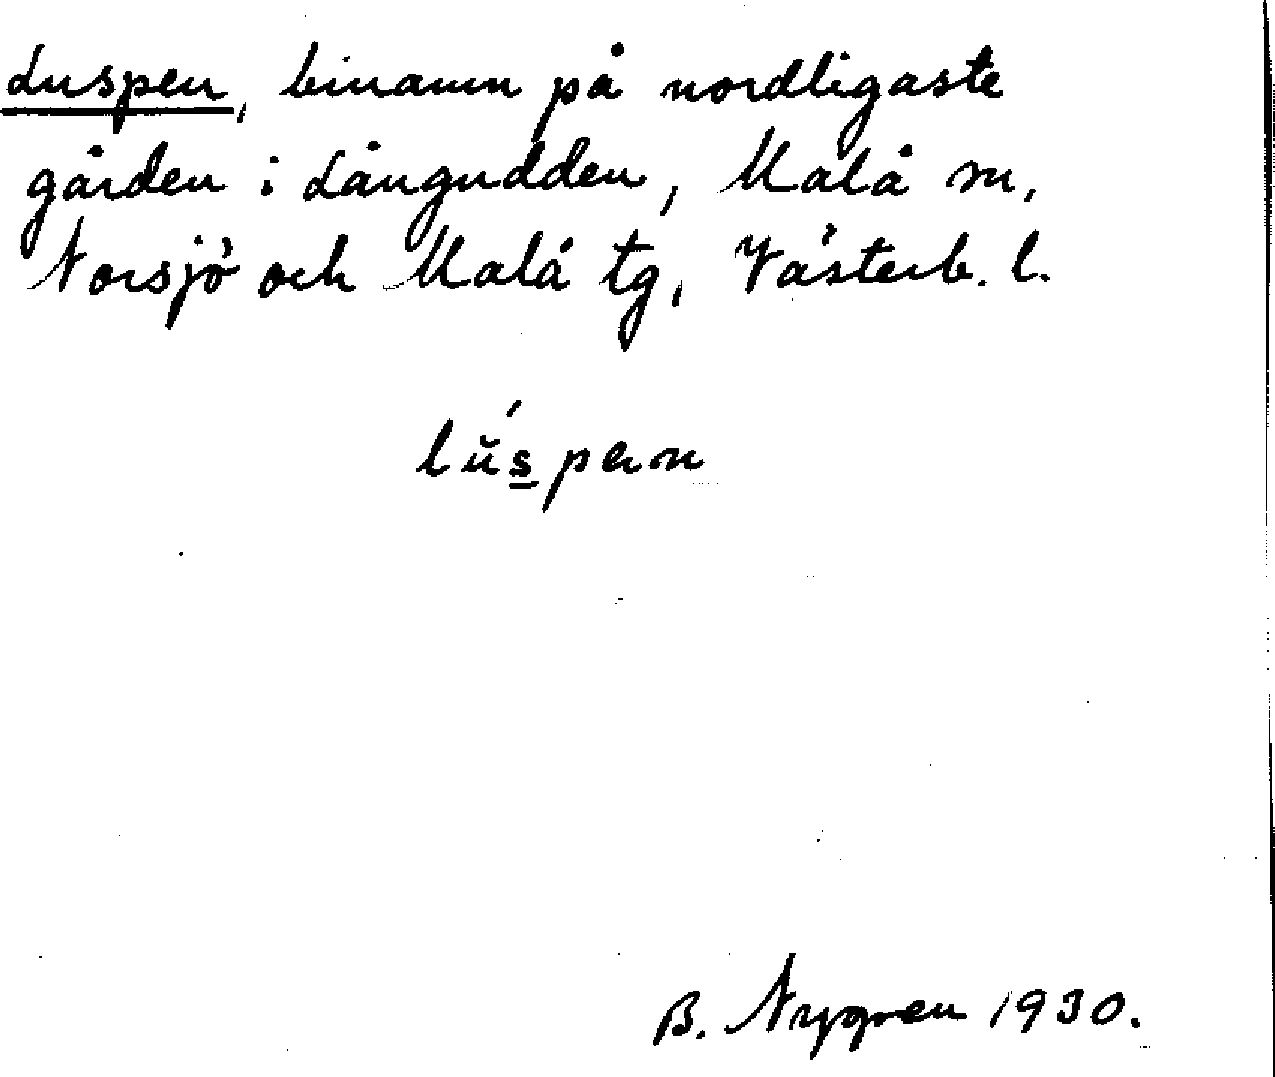 Luspen, binamn på nordligaste
gården i Långudden, Malå sn,
Norsjö och Malå tg, Västerb. l.
lŭś̲pen
B. Nygren 1930.